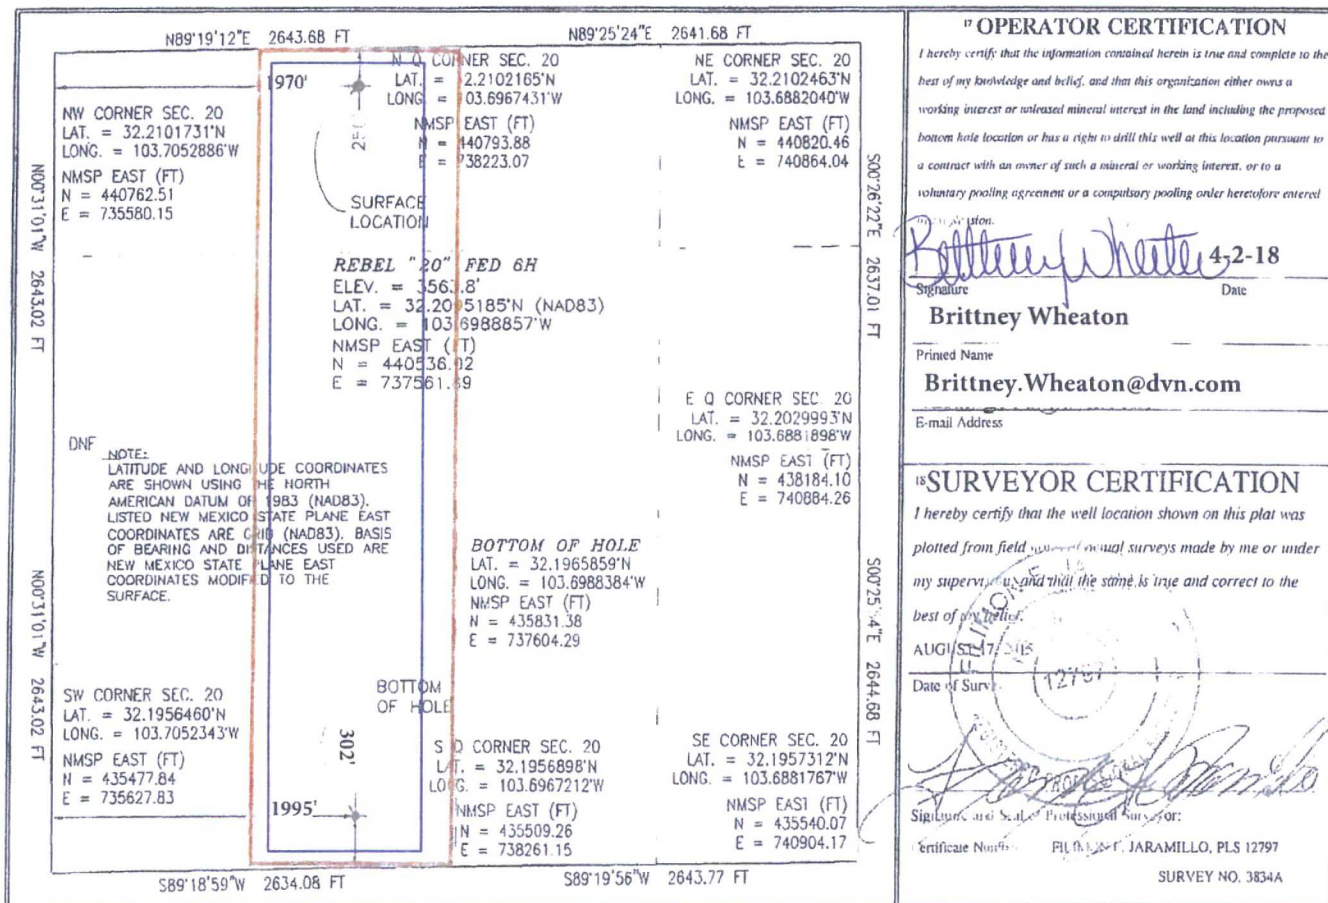 N89°19'12"E 2643.68 FT
N89°25'24"E 2641.68 FT
1970'
NW CORNER SEC. 20
LAT. = 32.2101731°N
LONG. = 103.7052886°W
NMSP EAST (FT)
N = 440762.51
E = 735580.15
N Q CORNER SEC. 20
LAT. = 2.2102165°N
LONG. = 03.6967431°W
NMSP EAST (FT)
N = 440793.88
E = 738223.07
NE CORNER SEC. 20
LAT. = 32.2102463°N
LONG. = 103.6882040°W
NMSP EAST (FT)
N = 440820.46
E = 740864.04
SURFACE
LOCATION
N00°31'01"W 2643.02 FT
S00°26'22"E 2637.01 FT
REBEL "20" FED 6H
ELEV. = 3563.8'
LAT. = 32.2095185°N (NAD83)
LONG. = 103.6988857°W
NMSP EAST (FT)
N = 440536.02
E = 737561.69
E Q CORNER SEC. 20
LAT. = 32.2029993°N
LONG. = 103.6881898°W
NMSP EAST (FT)
N = 438184.10
E = 740884.26
DNF
NOTE:
LATITUDE AND LONGITUDE COORDINATES
ARE SHOWN USING THE NORTH
AMERICAN DATUM OF 1983 (NAD83).
LISTED NEW MEXICO STATE PLANE EAST
COORDINATES ARE GRID (NAD83). BASIS
OF BEARING AND DISTANCES USED ARE
NEW MEXICO STATE PLANE EAST
COORDINATES MODIFIED TO THE
SURFACE.
BOTTOM OF HOLE
LAT. = 32.1965859°N
LONG. = 103.6988384°W
NMSP EAST (FT)
N = 435831.38
E = 737604.29
N00°31'01"W 2643.02 FT
2644.68 FT
SW CORNER SEC. 20
LAT. = 32.1956460°N
LONG. = 103.7052343°W
NMSP EAST (FT)
N = 435477.84
E = 735627.83
BOTTOM
OF HOLE
302'
1995'
S Q CORNER SEC. 20
LAT. = 32.1956898°N
LONG. = 103.6967212°W
NMSP EAST (FT)
N = 435509.26
E = 738261.15
SE CORNER SEC. 20
LAT. = 32.1957312°N
LONG. = 103.6881767°W
NMSP EAST (FT)
N = 435540.07
E = 740904.17
S89°18'59"W 2634.08 FT
S89°19'56"W 2643.77 FT
17 OPERATOR CERTIFICATION
I hereby certify that the information contained herein is true and complete to the
best of my knowledge and belief, and that this organization either owns a
working interest or unleased mineral interest in the land including the proposed
bottom hole location or has a right to drill this well at this location pursuant to
a contract with an owner of such a mineral or working interest, or to a
voluntary pooling agreement or a compulsory pooling order heretofore entered
Brittney Wheaton 4-2-18
Signature Date
Brittney Wheaton
Printed Name
Brittney.Wheaton@dvn.com
E-mail Address
18 SURVEYOR CERTIFICATION
I hereby certify that the well location shown on this plat was
plotted from field actual surveys made by me or under
my and that the same is true and correct to the
best of my belief.
AUGUST 17, 2015
Date of
12797
Signature and Seal of Professional Surveyor:
Certificate JARAMILLO, PLS 12797
SURVEY NO. 3834A